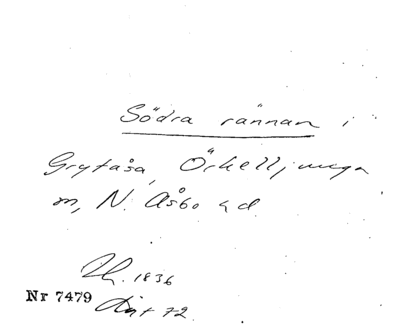 Södra rännan i
Grytåsa, Örkelljunga
m, N. Åsbo hd
1836
Nr 7479